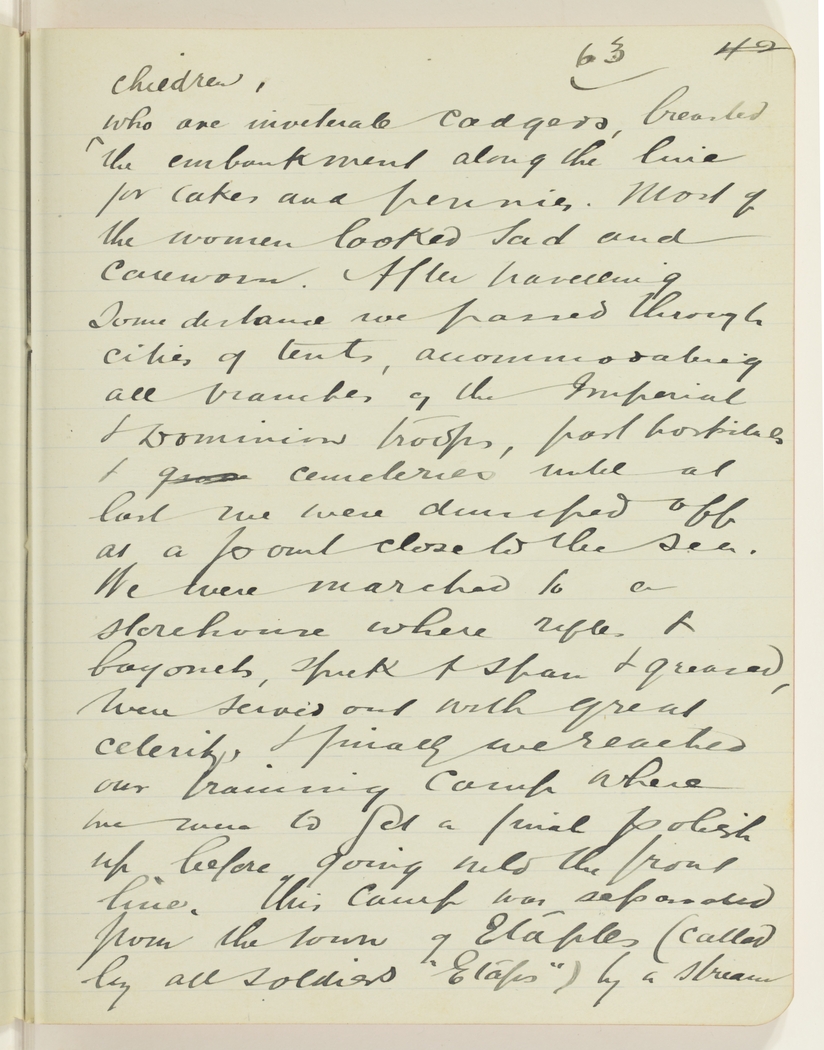 63 42
children,
who are inveterate cadgers, breasted
the embankment along the line
for cakes and pennies. Most of
the women looked sad and
careworn. After travelling
some distance we passed through
cities of tents, accommodating
all branches of the Imperial
& Dominion troops, past hospitals
& cemeteries until at
last we were dumped off
at a point close to the sea.
We were marched to a
storehouse where rifles &
bayonets, spick & span & greased,
were served out with great
celerity, & finally we reached
our training camp where
we were to get a final polish
up before going into the front
line. This camp was separated
from the town of Etāples (called
by all soldiers "Etāps") by a stream